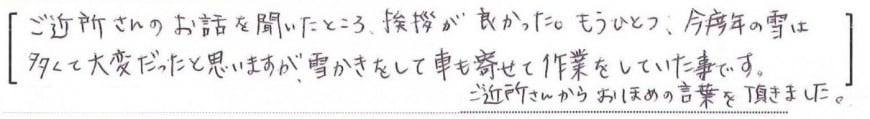 ご近所さんのお話を聞いたところ、挨拶が良かった。もうひとつ、今年の雪は
多くて大変だったと思いますが、雪かきをして車も寄せて作業をしていた事です。
ご近所さんからおほめの言葉を頂きました。